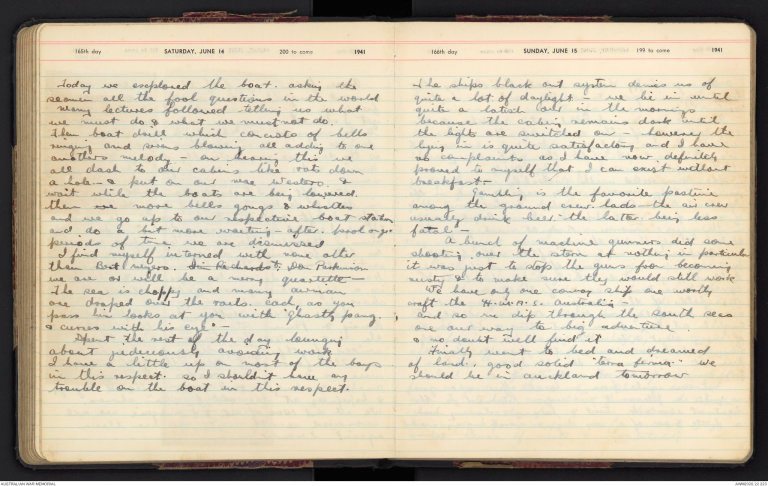 165th day SATURDAY, JUNE 14 200 to come 1941
Today we explored the boat. asking the
seamen all the fool questions in the world
Many lectures followed telling us what
we must do & what we must not do.
Then boat drill which consists of bells
ringing and sirens blowing all adding to one
anothers melody – on hearing this we
all dash to our cabins like rats down
a hole. & put on our mae Wests &
wait while the boats are being lowered.
then one more bells gongs & whistles
and we go up to our respective boat station
and do a bit more waiting – after. prolonged
periods of time we are dismissed
I find myself interned with none other
than Bert Don Parkinson
we are or will be a merry quartette
The sea is choppy and many airmen
are draped over the rails. each, as you
pass him looks at you with "ghastly pang.
& curses with his eye" –
Spent the rest of the day lounging
about judiciously avoiding work
I have a little up on most of the boys
in this respect. so I shouldn't have any
trouble on the boat in this respect.
166th day SUNDAY, JUNE 15 199 to come 1941
The ships black out system denies us of
quite a lot of daylight – we lie in until
quite a latish hour in the mornings
because the cabin remains dark until
the lights are switched on – however the
lying in is quite satisfactory and I have
no complaints as I have now definitely
proved to myself that I can exist without
breakfast. –
Gambling is the favourite pastime
among the ground crew lads – the air crew
usually drink beer – the latter being less
fatal –
A bunch of machine gunners did some
shooting over the stern at nothing in particular
it was just to stop the guns from becoming
rusty & to make sure they would still work
We have as one convoy ship one worthy
craft the H.M.A.S. Australia –
and so we dip through the south seas
on our way to big adventure
& no doubt we'll find it
Finally went to bed and dreamed
of land, good solid "terra firma" we
should be in auckland tomorrow
AUSTRALIAN WAR MEMORIAL